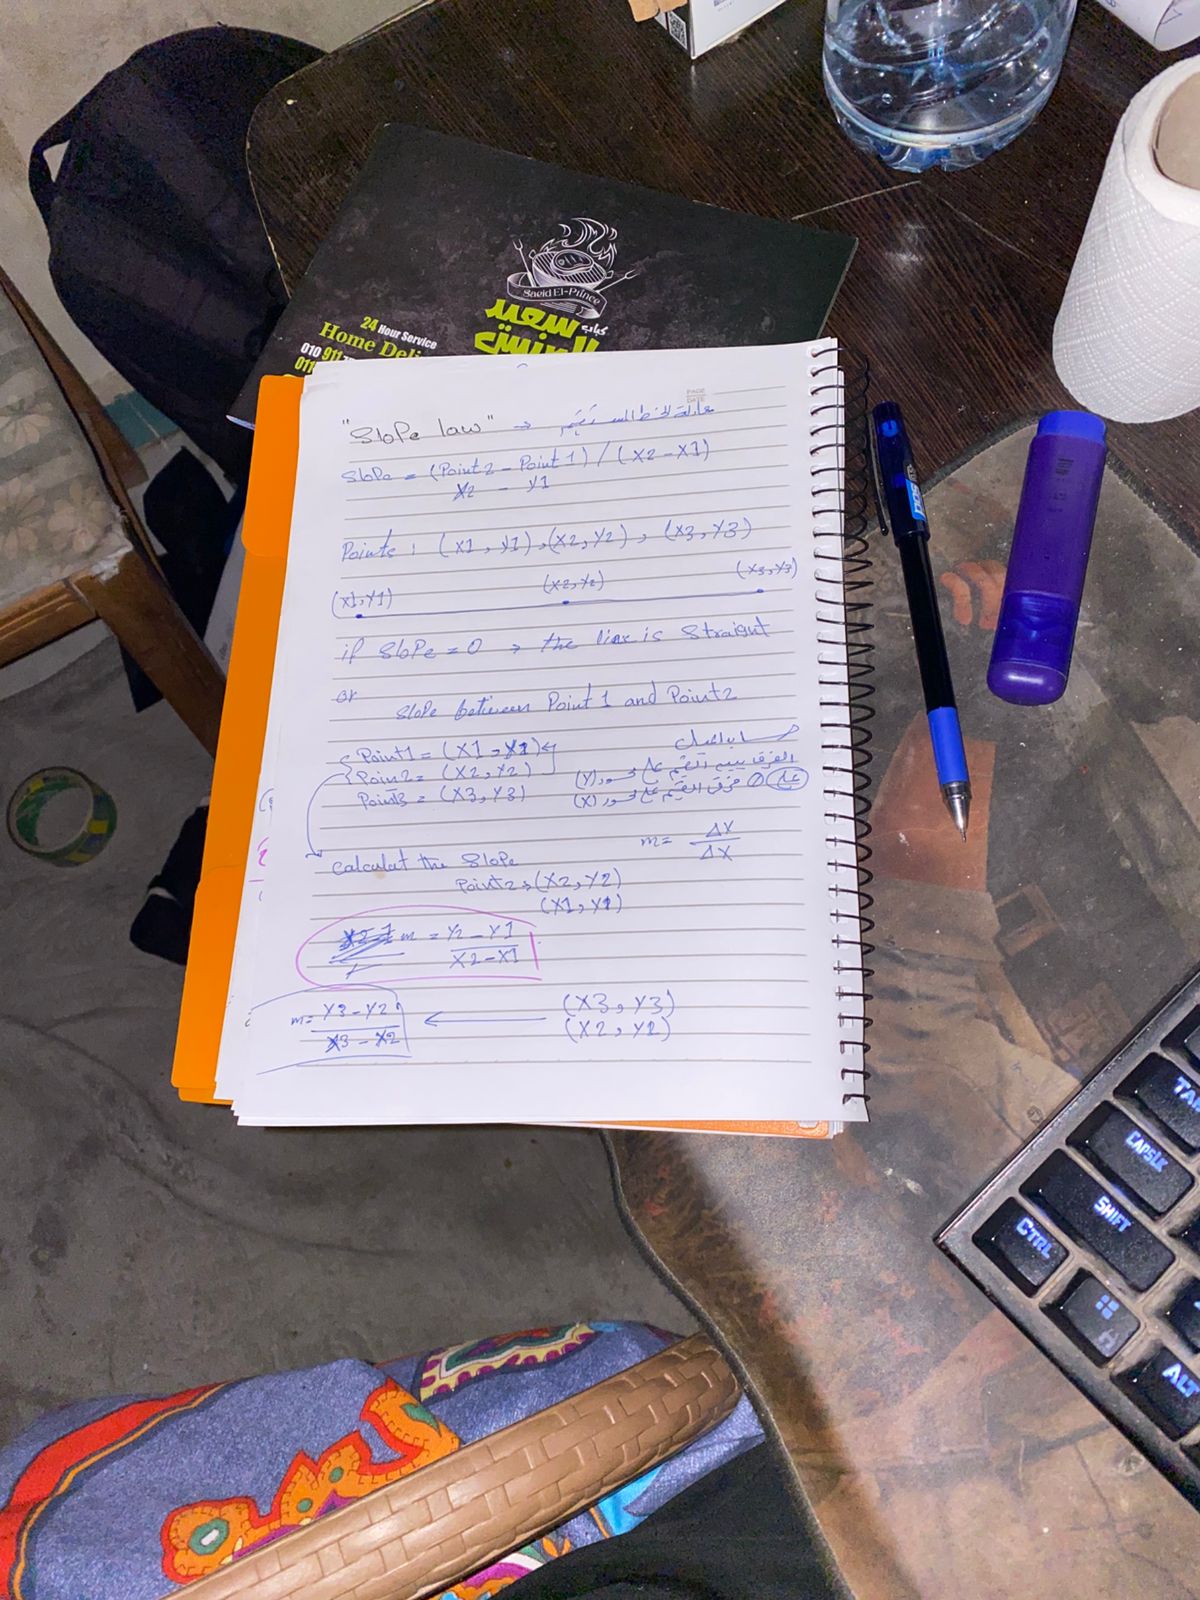 Saeid El-Prince
كباب
سعيد
البرنس
24 Hour Service
Home Deli
010 911
011
PAGE
DATE
"Slope law" → معادلة الخط المستقيم
Slope = (Point2 - Point1) / (X2-X1)
Y2 - Y1
Points: (X1, Y1), (X2, Y2), (X3, Y3)
(X1,Y1) (X2,Y2) (X3,Y3)
if Slope = 0 → the line is Straight
or
Slope between Point1 and Point2
Point1 = (X1, Y1)
حساب الميل
Point2 = (X2, Y2)
الفرق بين القيم على محور (Y)
Point3 = (X3, Y3)
على فرق القيم على محور (X)
m = ΔY / ΔX
Calculat the Slope
Point2 → (X2, Y2)
(X1, Y1)
m = Y2-Y1 / X2-X1
m = Y3-Y2 / X3-X2 ← (X3, Y3)
(X2, Y2)
TAB
CAPSLK
SHIFT
CTRL
ALT